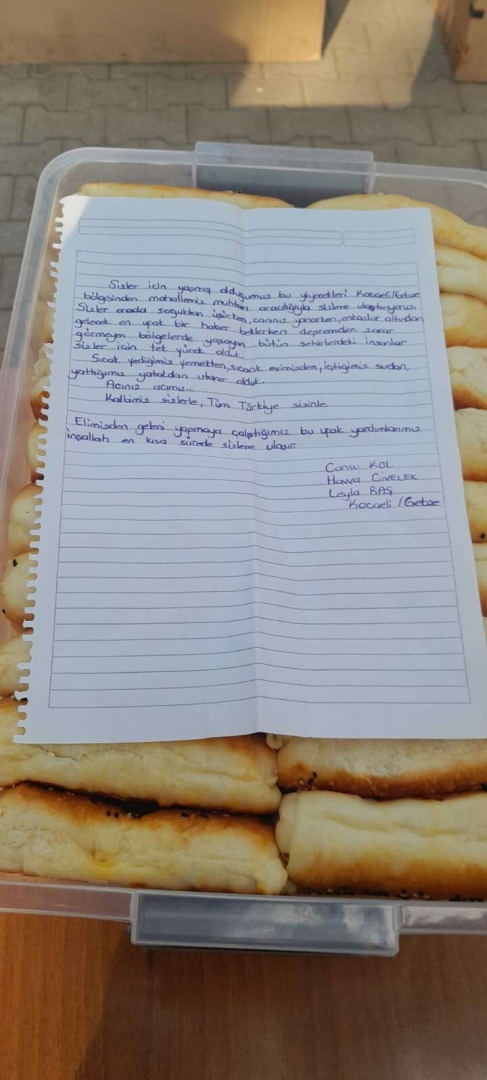 Sizler için yapmış olduğumuz bu yiyecekleri Kocaeli/Gebze
bölgesinden mahallemiz muhtarı aracılığıyla sizlere ulaştırıyoruz.
Sizler orada soğuktan üşürken, canınız yanarken, enkazlar altından
gelecek en ufak bir haber beklerken depremden zarar
görmeyen bölgelerde yaşayan bütün şehirlerdeki insanlar
sizler için tek yürek oldu.
Sıcak yediğimiz yemekten, sıcacık evimizden, içtiğimiz sudan,
yattığımız yataktan utanır olduk.
Acınız acımız...
Kalbimiz sizlerle, Tüm Türkiye sizinle
Elimizden geleni yapmaya çalıştığımız bu ufak yardımlarımız
inşallah en kısa sürede sizlere ulaşır.
Cansu KOL
Havva CİVELEK
Leyla BAŞ
Kocaeli /Gebze